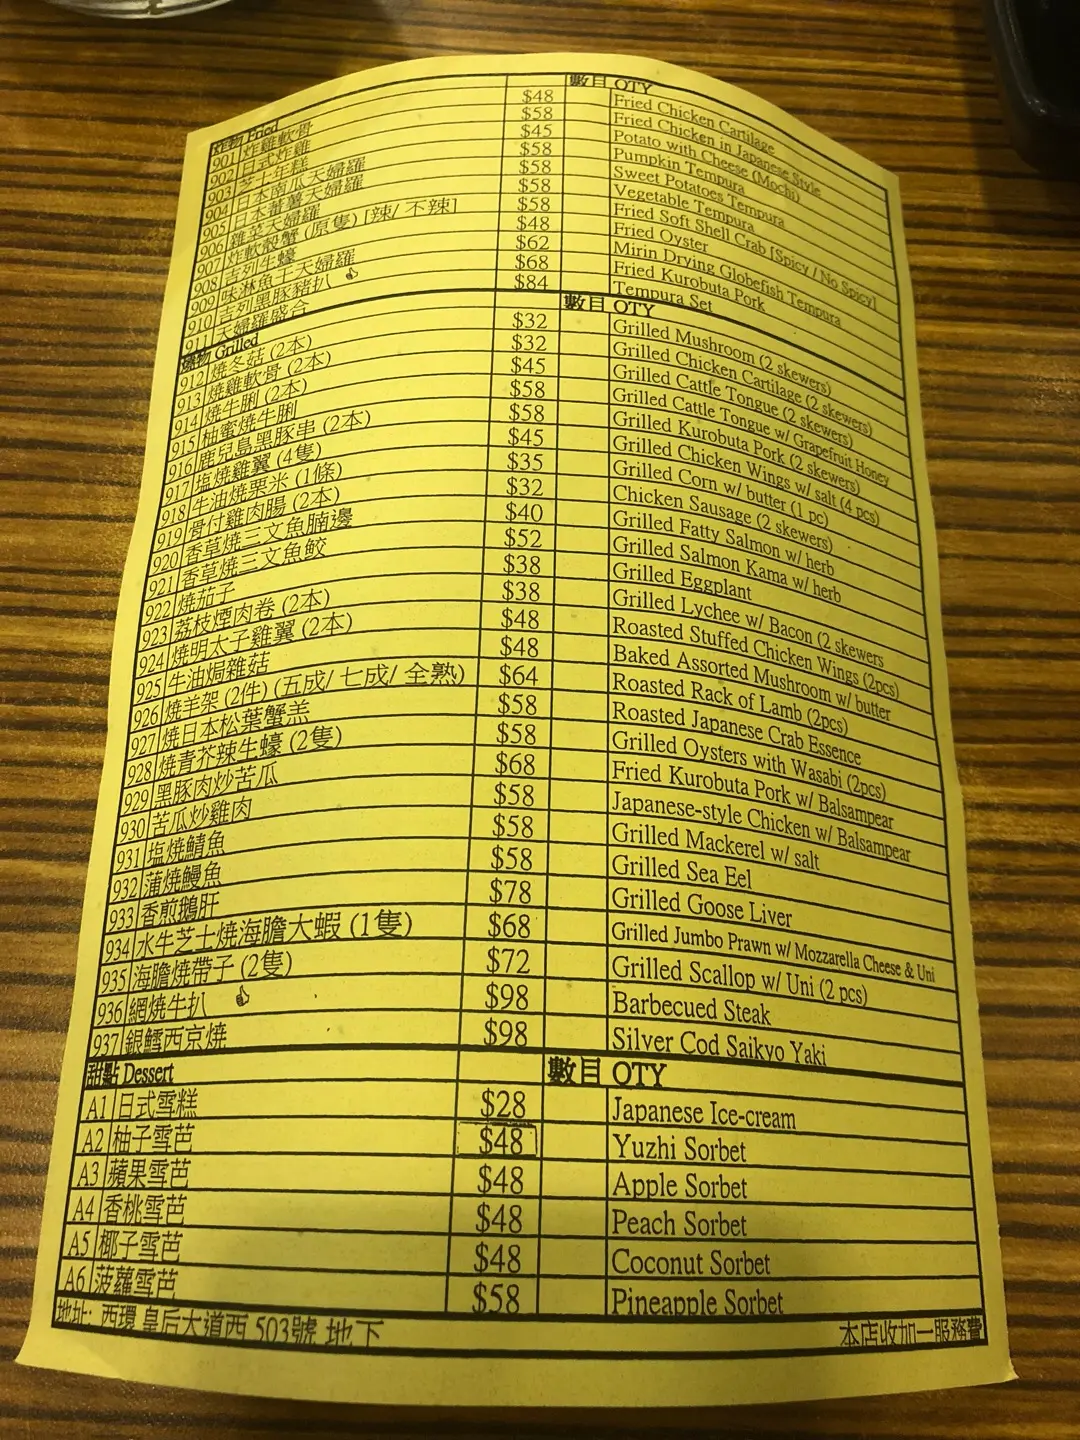 炸物 Fried 數目 QTY
901 炸雞軟骨 $48 Fried Chicken Cartilage
902 日式炸雞 $58 Fried Chicken in Japanese Style
903 芝士年糕 $45 Potato with Cheese (Mochi)
904 日本南瓜天婦羅 $58 Pumpkin Tempura
905 日本蕃薯天婦羅 $58 Sweet Potatoes Tempura
906 雜菜天婦羅 $58 Vegetable Tempura
907 炸軟殼蟹 (原隻) [辣/ 不辣] $58 Fried Soft Shell Crab [Spicy / No Spicy]
908 吉列生蠔 $48 Fried Oyster
909 味淋魚干天婦羅 $62 Mirin Drying Globefish Tempura
910 吉列黑豚豬扒 $68 Fried Kurobuta Pork
911 天婦羅盛合 $84 Tempura Set
燒物 Grilled 數目 QTY
912 燒冬菇 (2本) $32 Grilled Mushroom (2 skewers)
913 燒雞軟骨 (2本) $32 Grilled Chicken Cartilage (2 skewers)
914 燒牛脷 (2本) $45 Grilled Cattle Tongue (2 skewers)
915 柚蜜燒牛脷 $58 Grilled Cattle Tongue w/ Grapefruit Honey
916 鹿兒島黑豚串 (2本) $58 Grilled Kurobuta Pork (2 skewers)
917 塩燒雞翼 (4隻) $45 Grilled Chicken Wings w/ salt (4 pcs)
918 牛油燒粟米 (1條) $35 Grilled Corn w/ butter (1 pc)
919 骨付雞肉腸 (2本) $32 Chicken Sausage (2 skewers)
920 香草燒三文魚腩邊 $40 Grilled Fatty Salmon w/ herb
921 香草燒三文魚鮫 $52 Grilled Salmon Kama w/ herb
922 燒茄子 $38 Grilled Eggplant
923 荔枝煙肉卷 (2本) $38 Grilled Lychee w/ Bacon (2 skewers
924 燒明太子雞翼 (2本) $48 Roasted Stuffed Chicken Wings (2pcs)
925 牛油焗雜菇 $48 Baked Assorted Mushroom w/ butter
926 燒羊架 (2件) (五成/ 七成/ 全熟) $64 Roasted Rack of Lamb (2pcs)
927 燒日本松葉蟹羔 $58 Roasted Japanese Crab Essence
928 燒青芥辣生蠔 (2隻) $58 Grilled Oysters with Wasabi (2pcs)
929 黑豚肉炒苦瓜 $68 Fried Kurobuta Pork w/ Balsampear
930 苦瓜炒雞肉 $58 Japanese-style Chicken w/ Balsampear
931 塩燒鯖魚 $58 Grilled Mackerel w/ salt
932 蒲燒鰻魚 $58 Grilled Sea Eel
933 香煎鵝肝 $78 Grilled Goose Liver
934 水牛芝士燒海膽大蝦 (1隻) $68 Grilled Jumbo Prawn w/ Mozzarella Cheese & Uni
935 海膽燒帶子 (2隻) $72 Grilled Scallop w/ Uni (2 pcs)
936 網燒牛扒 $98 Barbecued Steak
937 銀鱈西京燒 $98 Silver Cod Saikyo Yaki
甜點 Dessert 數目 QTY
A1 日式雪糕 $28 Japanese Ice-cream
A2 柚子雪芭 $48 Yuzhi Sorbet
A3 蘋果雪芭 $48 Apple Sorbet
A4 香桃雪芭 $48 Peach Sorbet
A5 椰子雪芭 $48 Coconut Sorbet
A6 菠蘿雪芭 $58 Pineapple Sorbet
地址: 西環 皇后大道西 503號 地下 本店收加一服務費